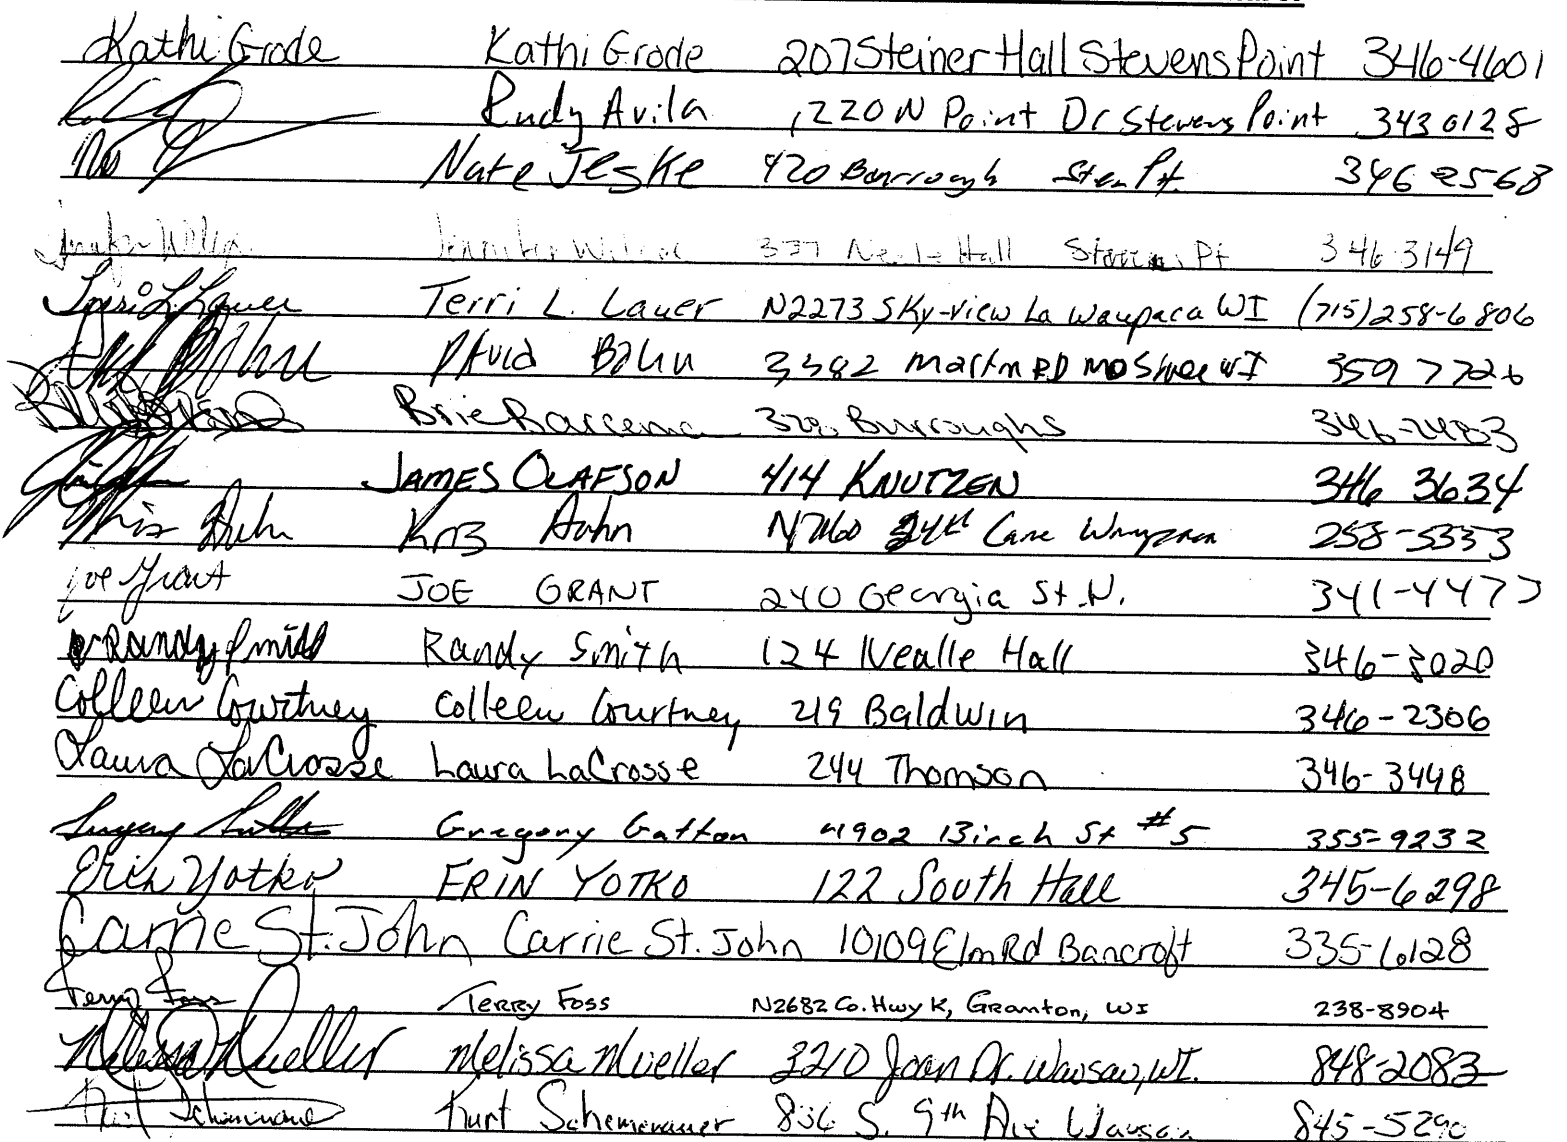 Kathi Grode Kathi Grode 207 Steiner Hall Stevens Point 346-4601
Rudy Avila 1220 N Point Dr Stevens Point 343 0128
Nate Jeske 420 Burrough Sten Pt. 346 2568
Jennifer 337 Neale Hall Stevens Pt 346-3149
Terri L. Lauer Terri L. Lauer N2273 Sky-view La Waupaca WI (715) 258-6806
David Bohn 3382 Martin RD Mosinee WI 359 7726
Brie 346-2483
JAMES OLAFSON 414 KNUTZEN 346 3634
Kris Hahn 258-5353
Joe Grant JOE GRANT 240 Georgia St. N. 341-4477
Randy Smith Randy Smith 124 Nealle Hall 346-3020
Colleen Courtney Colleen Courtney 219 Baldwin 346-2306
Laura LaCrosse Laura LaCrosse 244 Thomson 346-3448
Gregory Gatton 1902 Birch St #5 355-9232
Erin Yotko ERIN YOTKO 122 South Hall 345-6298
Carrie St. John Carrie St. John 10109 Elm Rd Bancroft 335-6128
Terry Foss TERRY FOSS N2682 Co. Hwy K, Granton, WI 238-8904
Melissa Mueller Melissa Mueller 3210 Joan Dr. Wausau, WI. 848-2083
Kurt Schemenauer Kurt Schemenauer 836 S. 9th Ave Wausau 845-5290